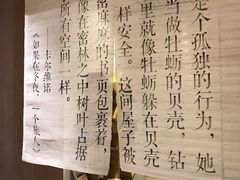 是个孤独的行为，她
当做牡蛎的贝壳，钻
里就像牡蛎躲在贝壳
样安全。这间屋子被
密麻麻的书页包裹着，
像在密林之中树叶占据
所有空间一样。
——卡尔维诺
《如果在冬夜，一个旅人》